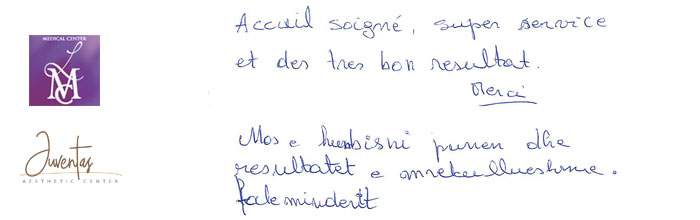 MEDICAL CENTER
LMC
Juventas
AESTHETIC CENTER
Accueil soigné, super service
et des tres bon resultat.
Merci
Mos e humbisni punen dhe
resultatet e mrekullueshme.
faleminderit